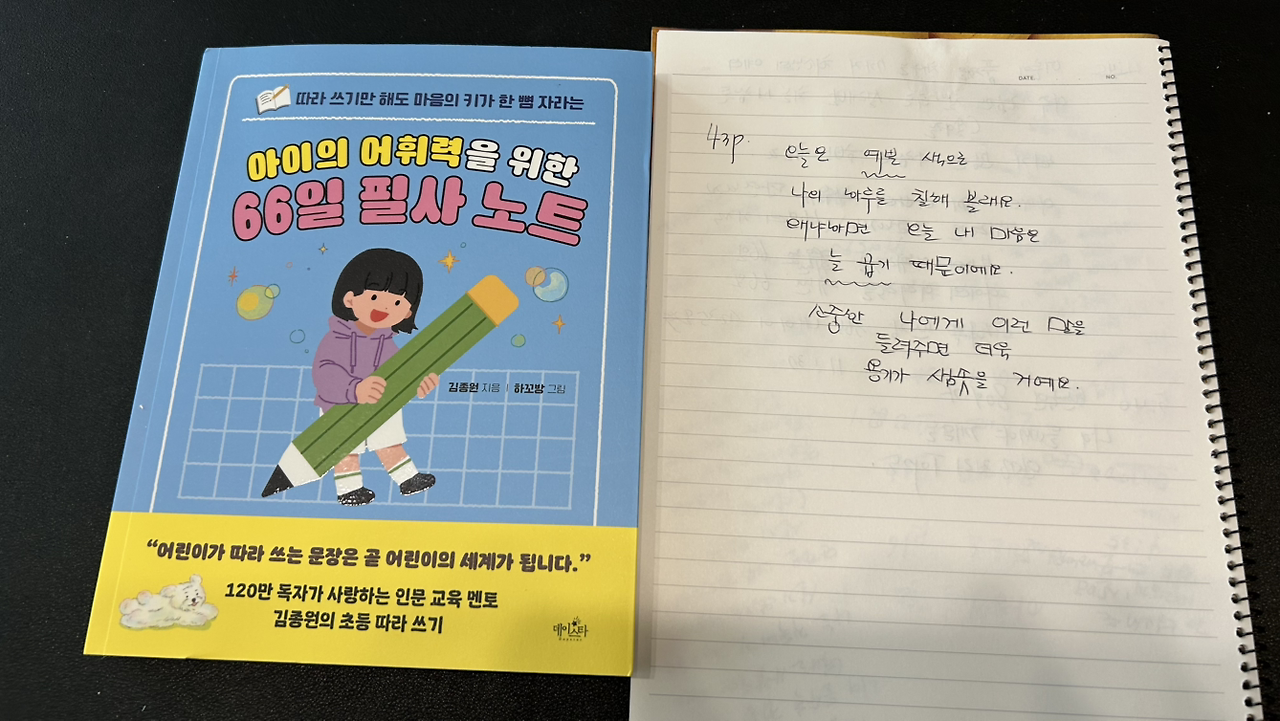 따라 쓰기만 해도 마음의 키가 한 뼘 자라는
아이의 어휘력을 위한
66일 필사 노트
김종원 지음 | 하꼬방 그림
“어린이가 따라 쓰는 문장은 곧 어린이의 세계가 됩니다.”
120만 독자가 사랑하는 인문 교육 멘토
김종원의 초등 따라 쓰기
데이스타
DATE. NO.
43p.
오늘은 예쁜 색으로
나의 하루를 칠해 볼래요.
왜냐하면 오늘 내 마음은
늘 곱기 때문이에요.
소중한 나에게 이런 말을
들려주면 더욱
용기가 샘솟을 거예요.